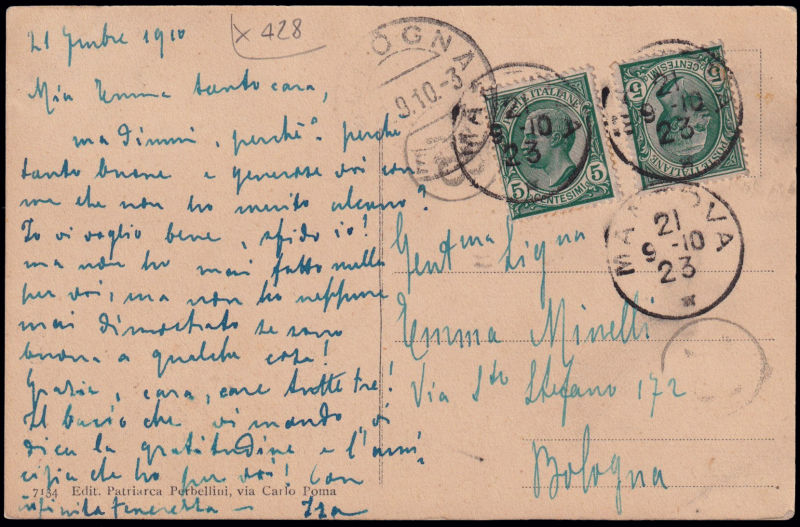 21 7mbre 1910
x 428
Mia Emma tanto cara,
ma dimmi, perché? perché
tanto buone e generose voi con
me che non ho merito alcuno?
Io vi voglio bene, sfido io!
ma non ho mai fatto nulla
per voi, ma non ho neppure
mai dimostrato se sono
buona a qualche cosa!
Grazie, cara, care tutte tre!
Il bacio che vi mando vi
dica la gratitudine e l'ami-
cizia che ho per voi! Con
infinita tenerezza —
7134 Edit. Patriarca Perbellini, via Carlo Poma
OGNA
9.10-3
MAN
21
9-10
23
POSTE ITALIANE
5 5
CENTESIMI
VA
21
9-10
23
POSTE ITALIANE
5
CENTESIMI
MANTOVA
21
9-10
23
Gentma Signa
Emma Minelli
Via Sto Stefano 172
Bologna